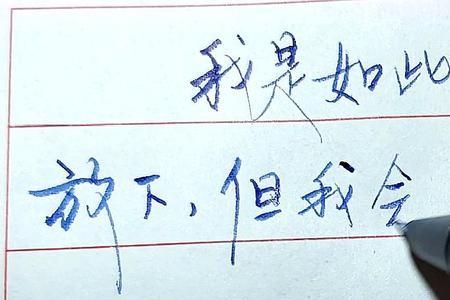 我是如此
放下，但我会